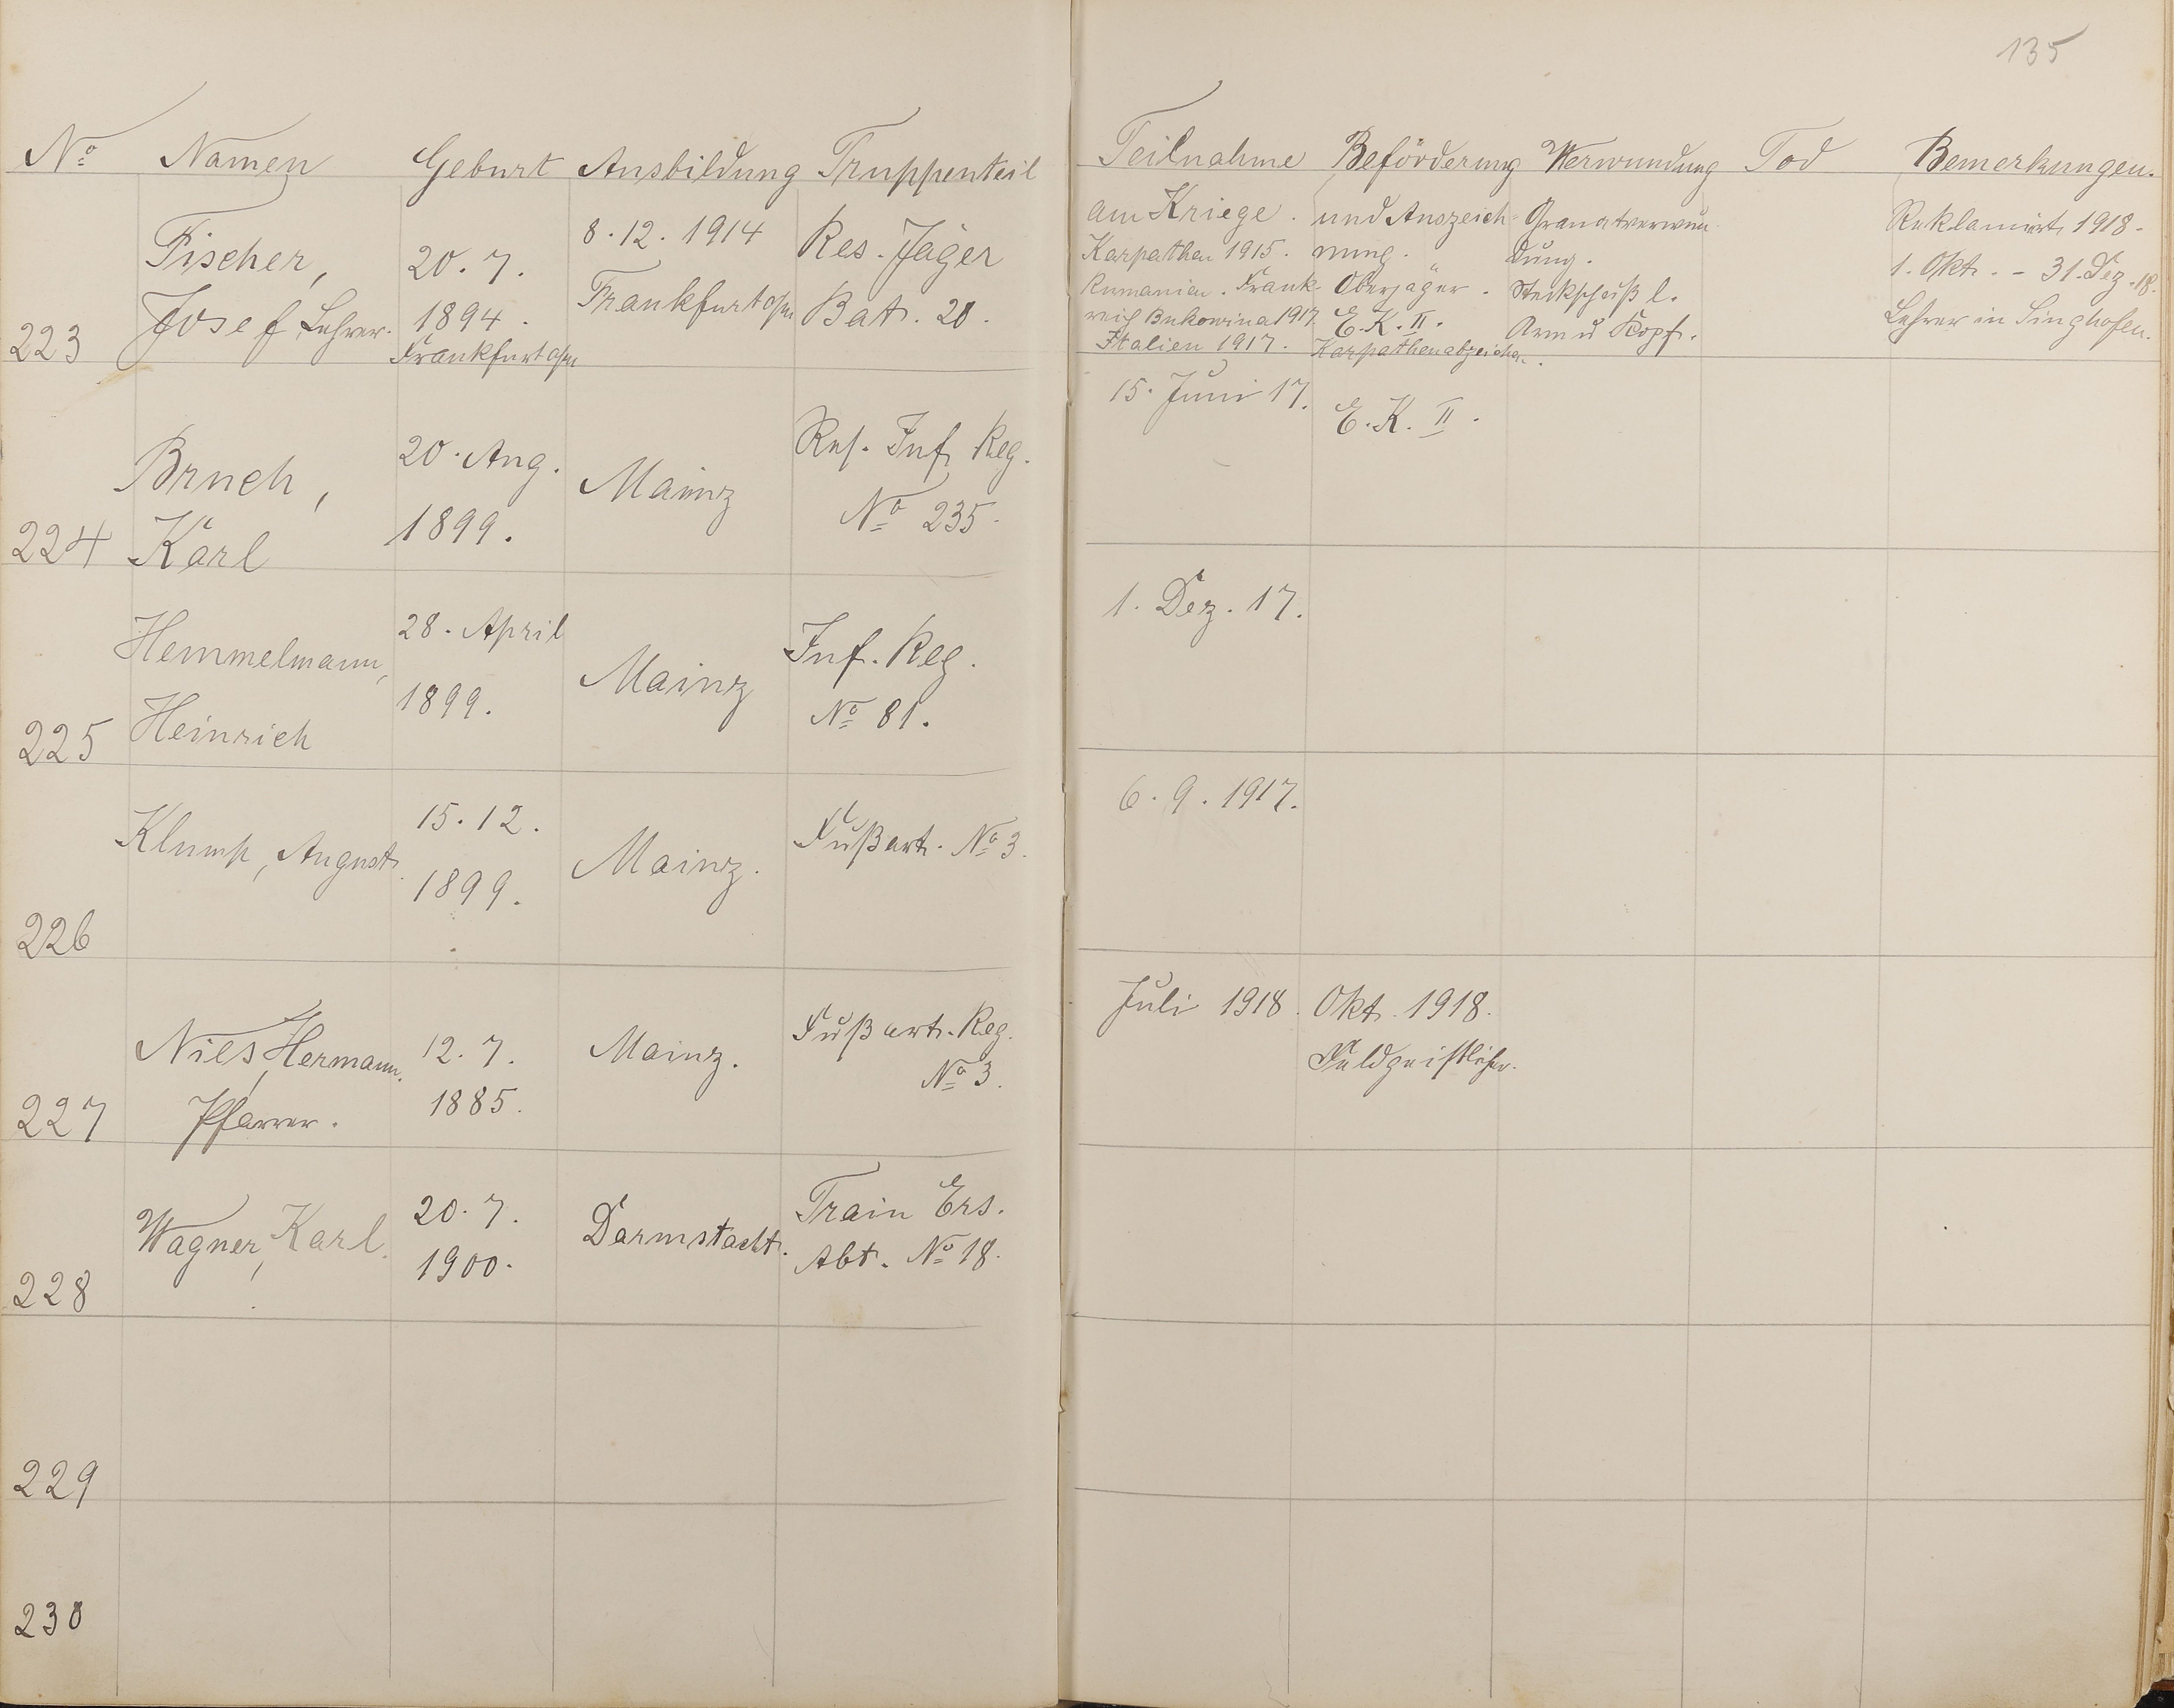 135
No Namen Geburt Ausbildung Truppenteil
Teilnahme Beförderung Verwundung Tod Bemerkungen.
am Kriege. und Auszeich-
nung.
223
Fischer,
Josef, Lehrer.
20. 7.
1894.
Frankfurt a/m
8. 12. 1914
Frankfurt a/m
Res. Jäger
Bat. 20.
Karpathen 1915.
Rumänien. Frank-
reich Bukowina 1917
Italien 1917.
Oberjäger.
E. K. II.
Karpathenabzeichen.
Granatverwun-
dung.
Steckschuß l.
Arm u Kopf.
Reklamirt 1918.
1. Okt. - 31. Dez. 18.
Lehrer in Singhofen.
224
Bruch,
Karl
20. Aug.
1899.
Mainz
Res. Inf. Reg.
No 235.
15. Juni 17.
E. K. II.
225
Hemmelmann,
Heinrich
28. April
1899.
Mainz
Inf. Reg.
No 81.
1. Dez. 17.
226
Klump, August.
15. 12.
1899.
Mainz.
Fußart. No 3.
6. 9. 1917.
227
Nies, Hermann.
Pfarrer.
12. 7.
1885.
Mainz.
Fußart. Reg.
No 3.
Juli 1918.
Okt. 1918.
Feldgeistlicher.
228
Wagner, Karl.
20. 7.
1900.
Darmstadt.
Train Ers.
Abt. No 18.
229
230